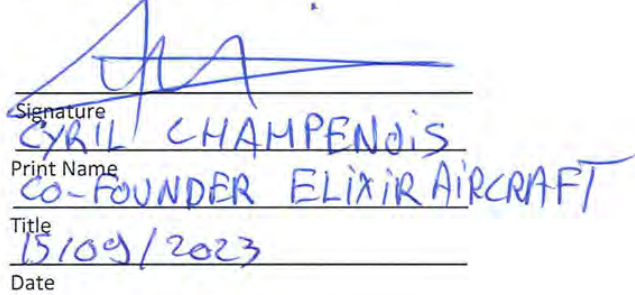 Signature
CYRIL CHAMPENOIS
Print Name
CO-FOUNDER ELIXIR AIRCRAFT
Title
15/09/2023
Date